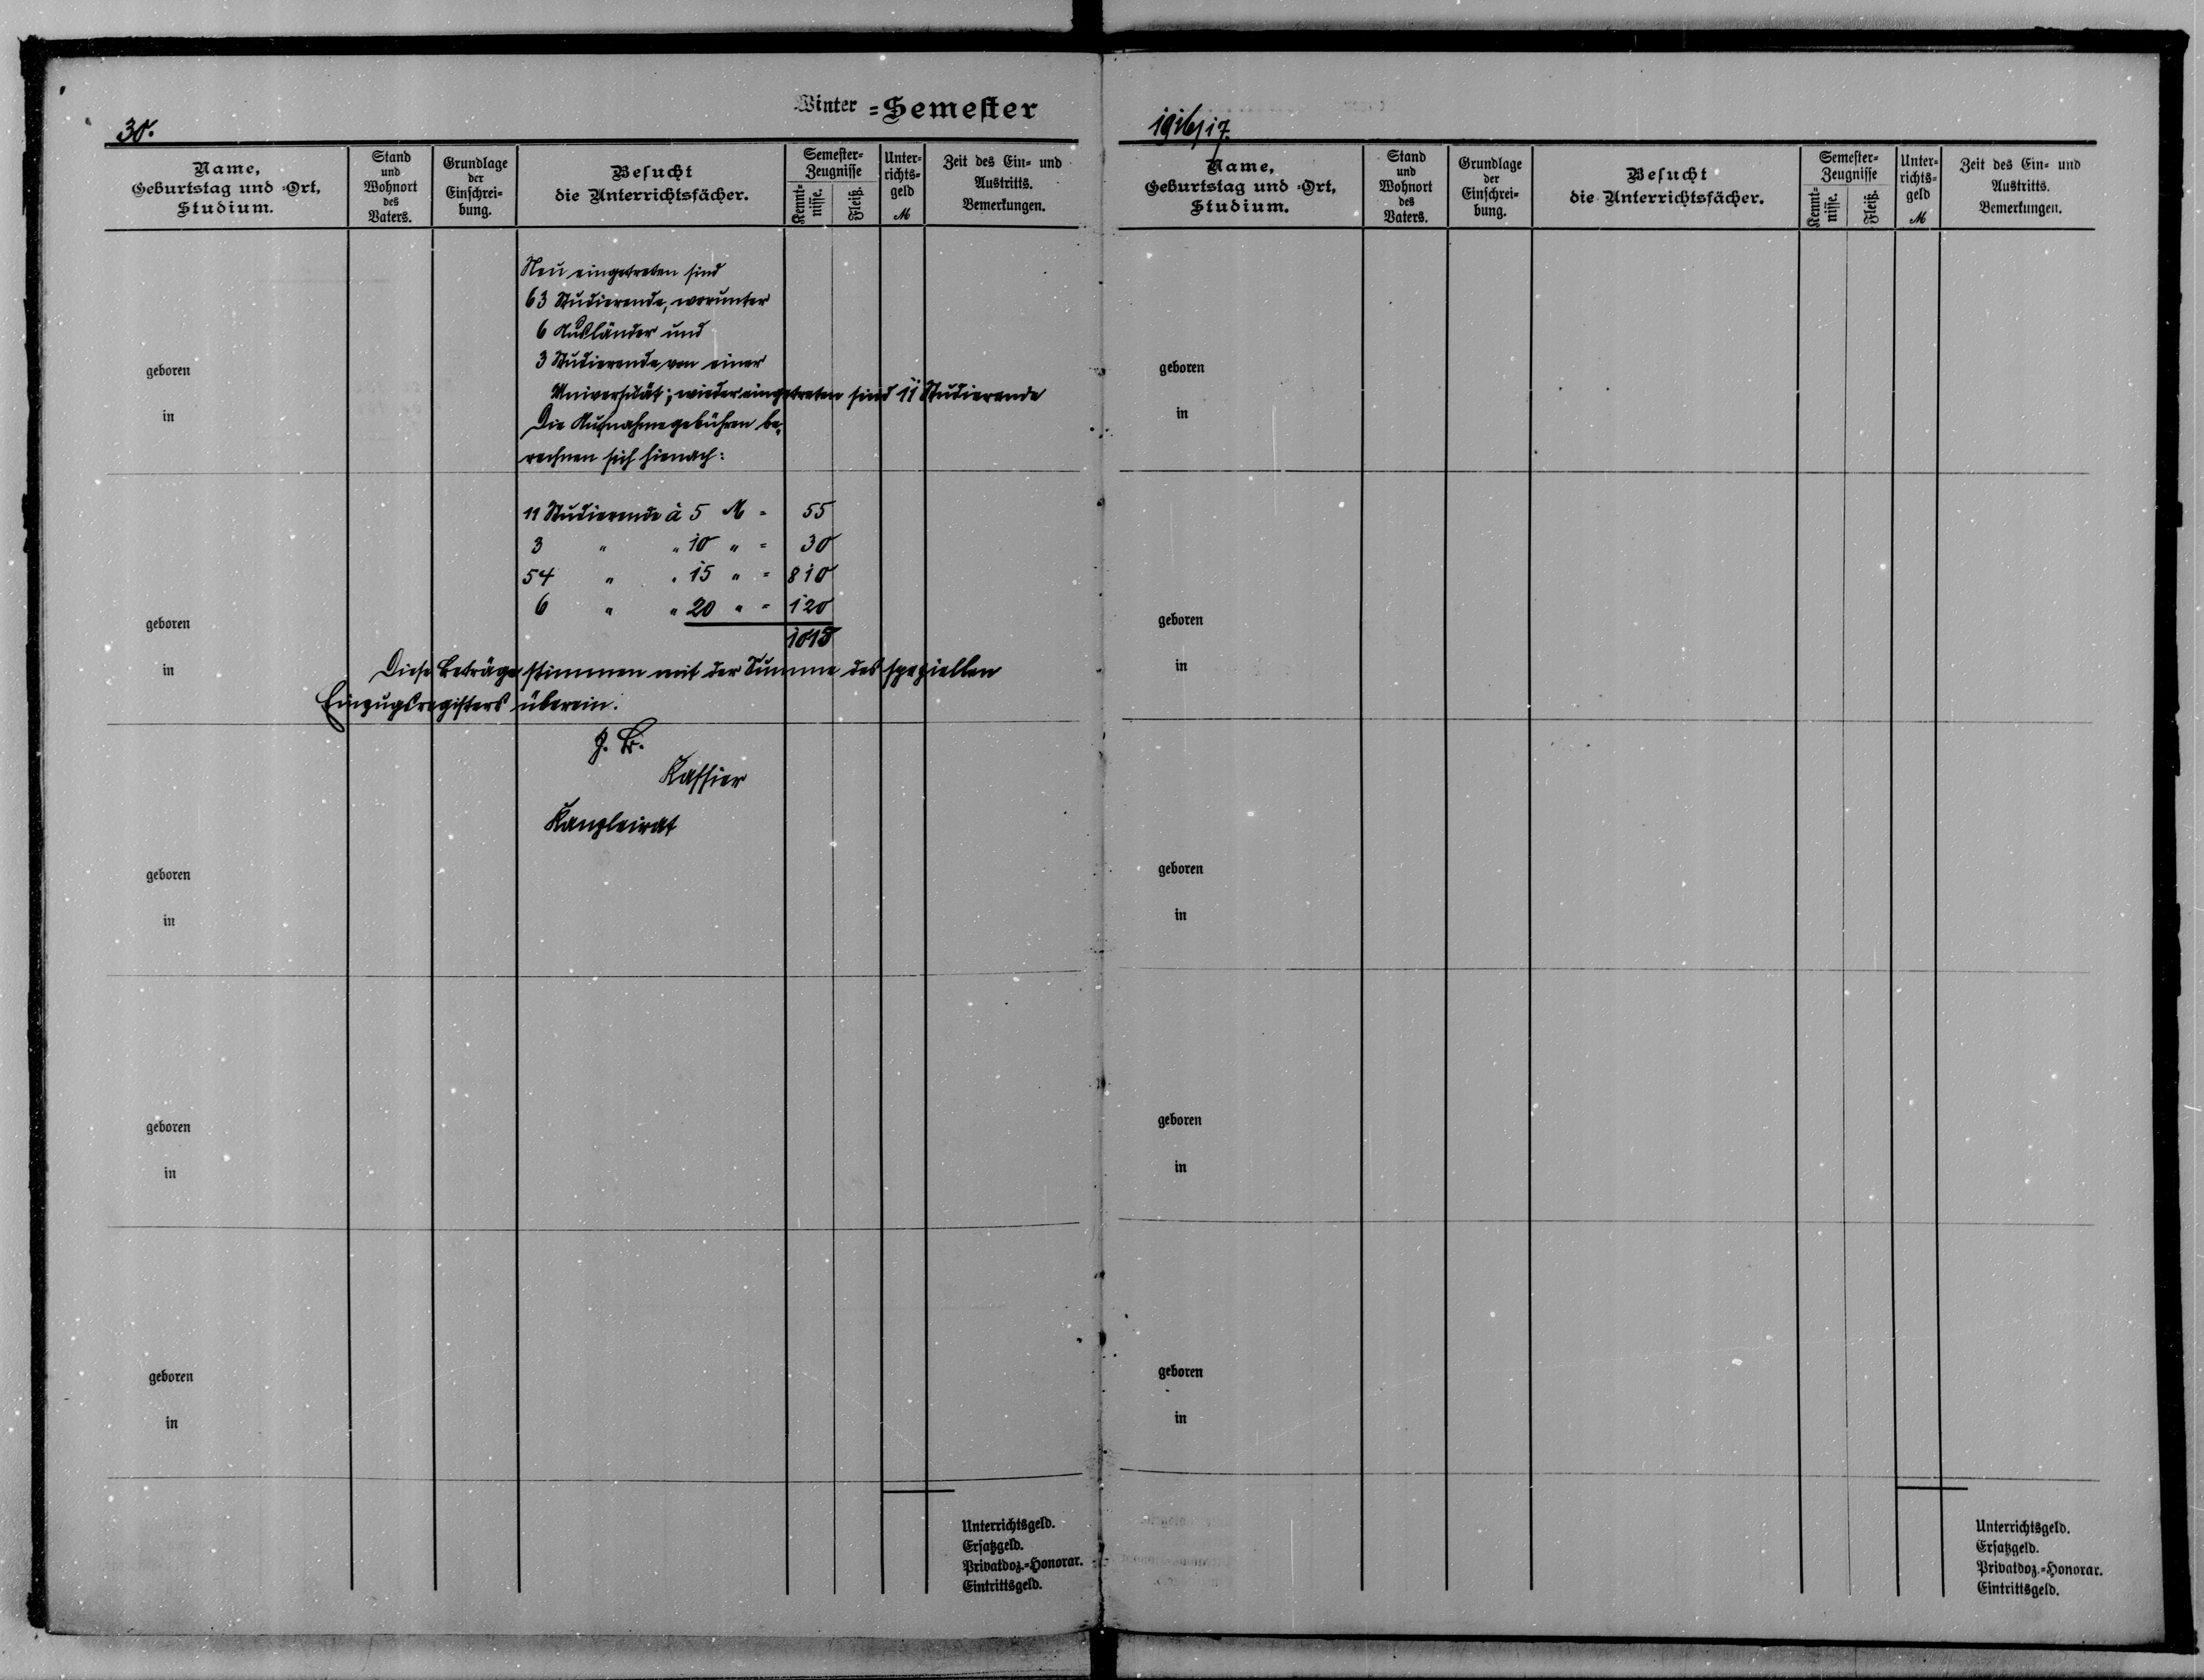 Winter =Semester
30.
Name,
Geburtstag und =Ort,
Studium.
Stand
und
Wohnort
des
Vaters.
Grundlage
der
Einschrei=
bung.
Besucht
die Unterrichtsfächer.
Semester=
Zeugnisse
Kennt=
nisse.
Fleiß.
Unter=
richts=
geld
M
Zeit des Ein= und
Austritts.
Bemerkungen.
Neu eingetreten sind
63 Studierende, worunter
6 Ausländer und
3 Studierende von einer
Universität; wieder eingetreten sind 11 Studierende
Die Aufnahmegebühren be=
rechnen sich hienach:
geboren
in
11 Studierende à 5 M = 55
3 " " 10 " = 30
54 " " 15 " = 810
6 " " 20 " = 120
1015
Diese Beträge stimmen mit der Summe des speziellen
Einzugsregisters überein.
geboren
in
Kassier
Kanzleirat
geboren
in
geboren
in
geboren
in
Unterrichtsgeld.
Ersatzgeld.
Privatdoz.=Honorar.
Eintrittsgeld.
1916/17.
Name,
Geburtstag und =Ort,
Studium.
Stand
und
Wohnort
des
Vaters.
Grundlage
der
Einschrei=
bung.
Besucht
die Unterrichtsfächer.
Semester=
Zeugnisse
Kennt=
nisse.
Fleiß.
Unter=
richts=
geld
M
Zeit des Ein= und
Austritts.
Bemerkungen.
geboren
in
geboren
in
geboren
in
geboren
in
geboren
in
Unterrichtsgeld.
Ersatzgeld.
Privatdoz.=Honorar.
Eintrittsgeld.